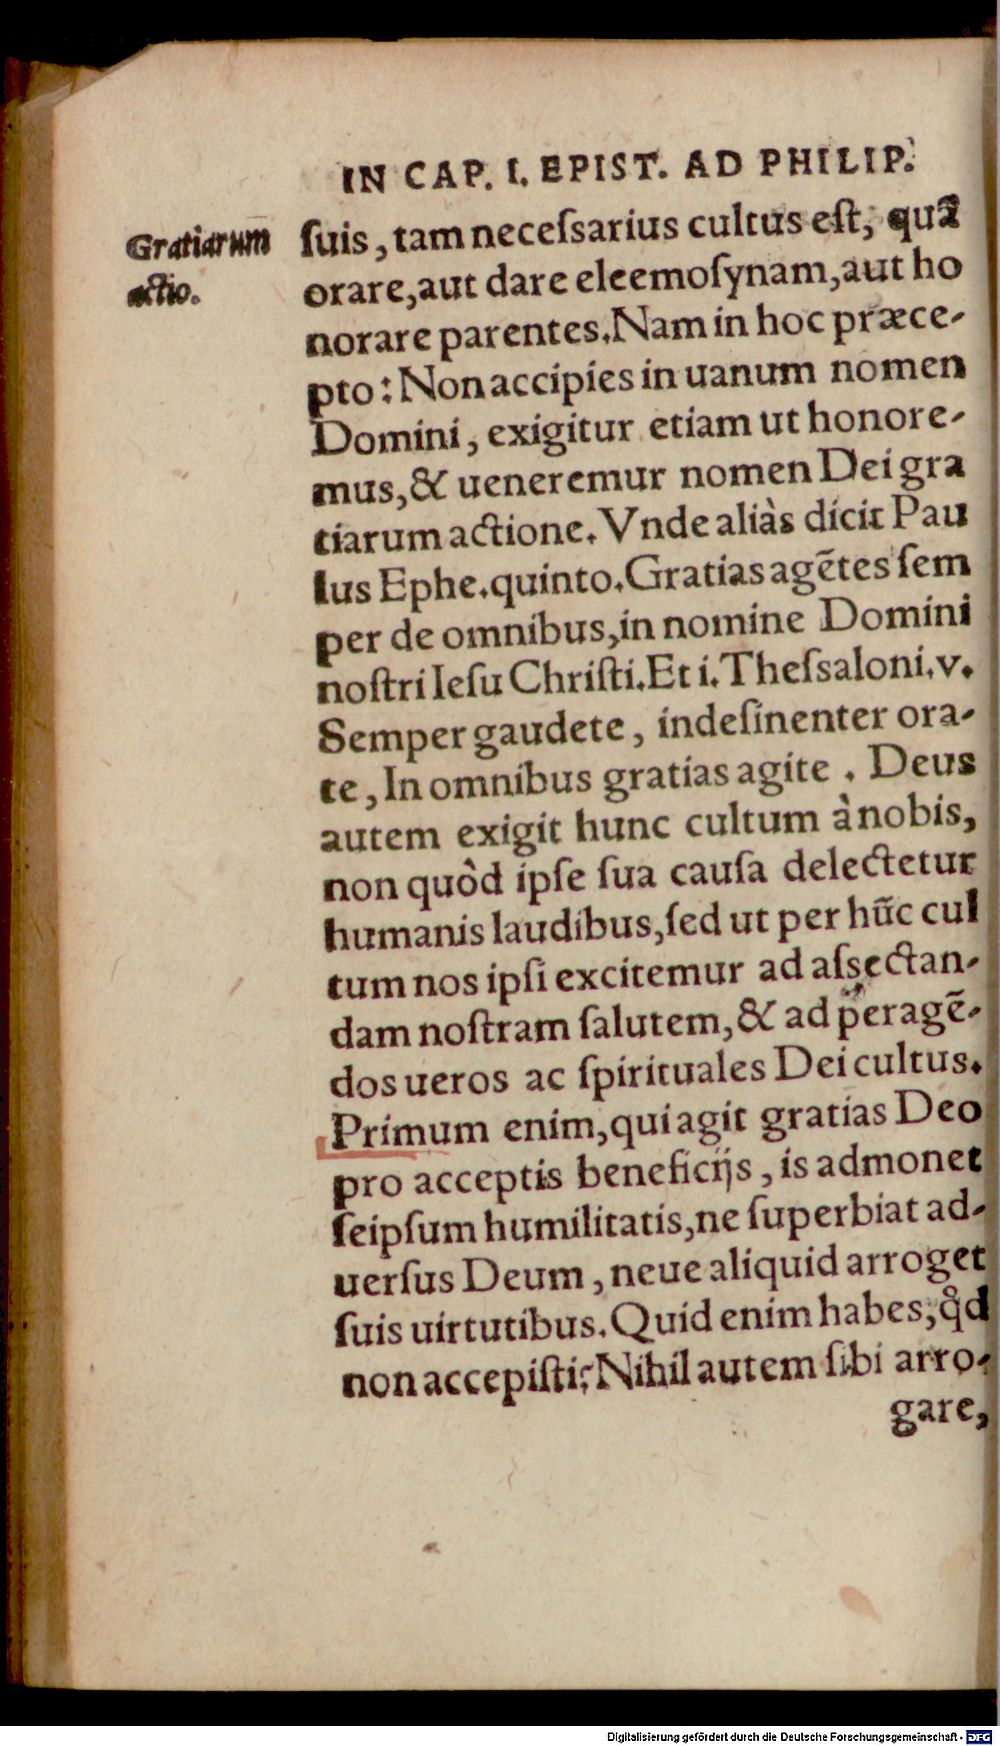 IN CAP. I. EPIST. AD PHILIP.
Gratiarum
actio.
ſuis, tam neceſsarius cultus eſt, quã
orare,aut dare eleemoſynam,aut ho
norare parentes.Nam in hoc præce-
pto: Non accipies in uanum nomen
Domini, exigitur etiam ut honore-
mus,& ueneremur nomen Dei gra
tiarum actione. Vnde aliàs dicit Pau
lus Ephe.quinto.Gratias agẽtes ſem
per de omnibus,in nomine Domini
noſtri Ieſu Chriſti.Et i.Theſsaloni.v.
Semper gaudete, indeſinenter ora-
te, In omnibus gratias agite. Deus
autem exigit hunc cultum à nobis,
non quòd ipſe ſua cauſa delectetur
humanis laudibus,ſed ut per hũc cul
tum nos ipſi excitemur ad aſsectan-
dam noſtram ſalutem,& ad peragẽ-
dos ueros ac ſpirituales Dei cultus.
Primum enim,qui agit gratias Deo
pro acceptis beneficijs, is admonet
ſeipſum humilitatis,ne ſuperbiat ad-
uerſus Deum, neue aliquid arroget
ſuis uirtutibus.Quid enim habes,qd̊
non accepiſti? Nihil autem ſibi arro-
gare,
Digitalisierung gefördert durch die Deutsche Forschungsgemeinschaft - DFG